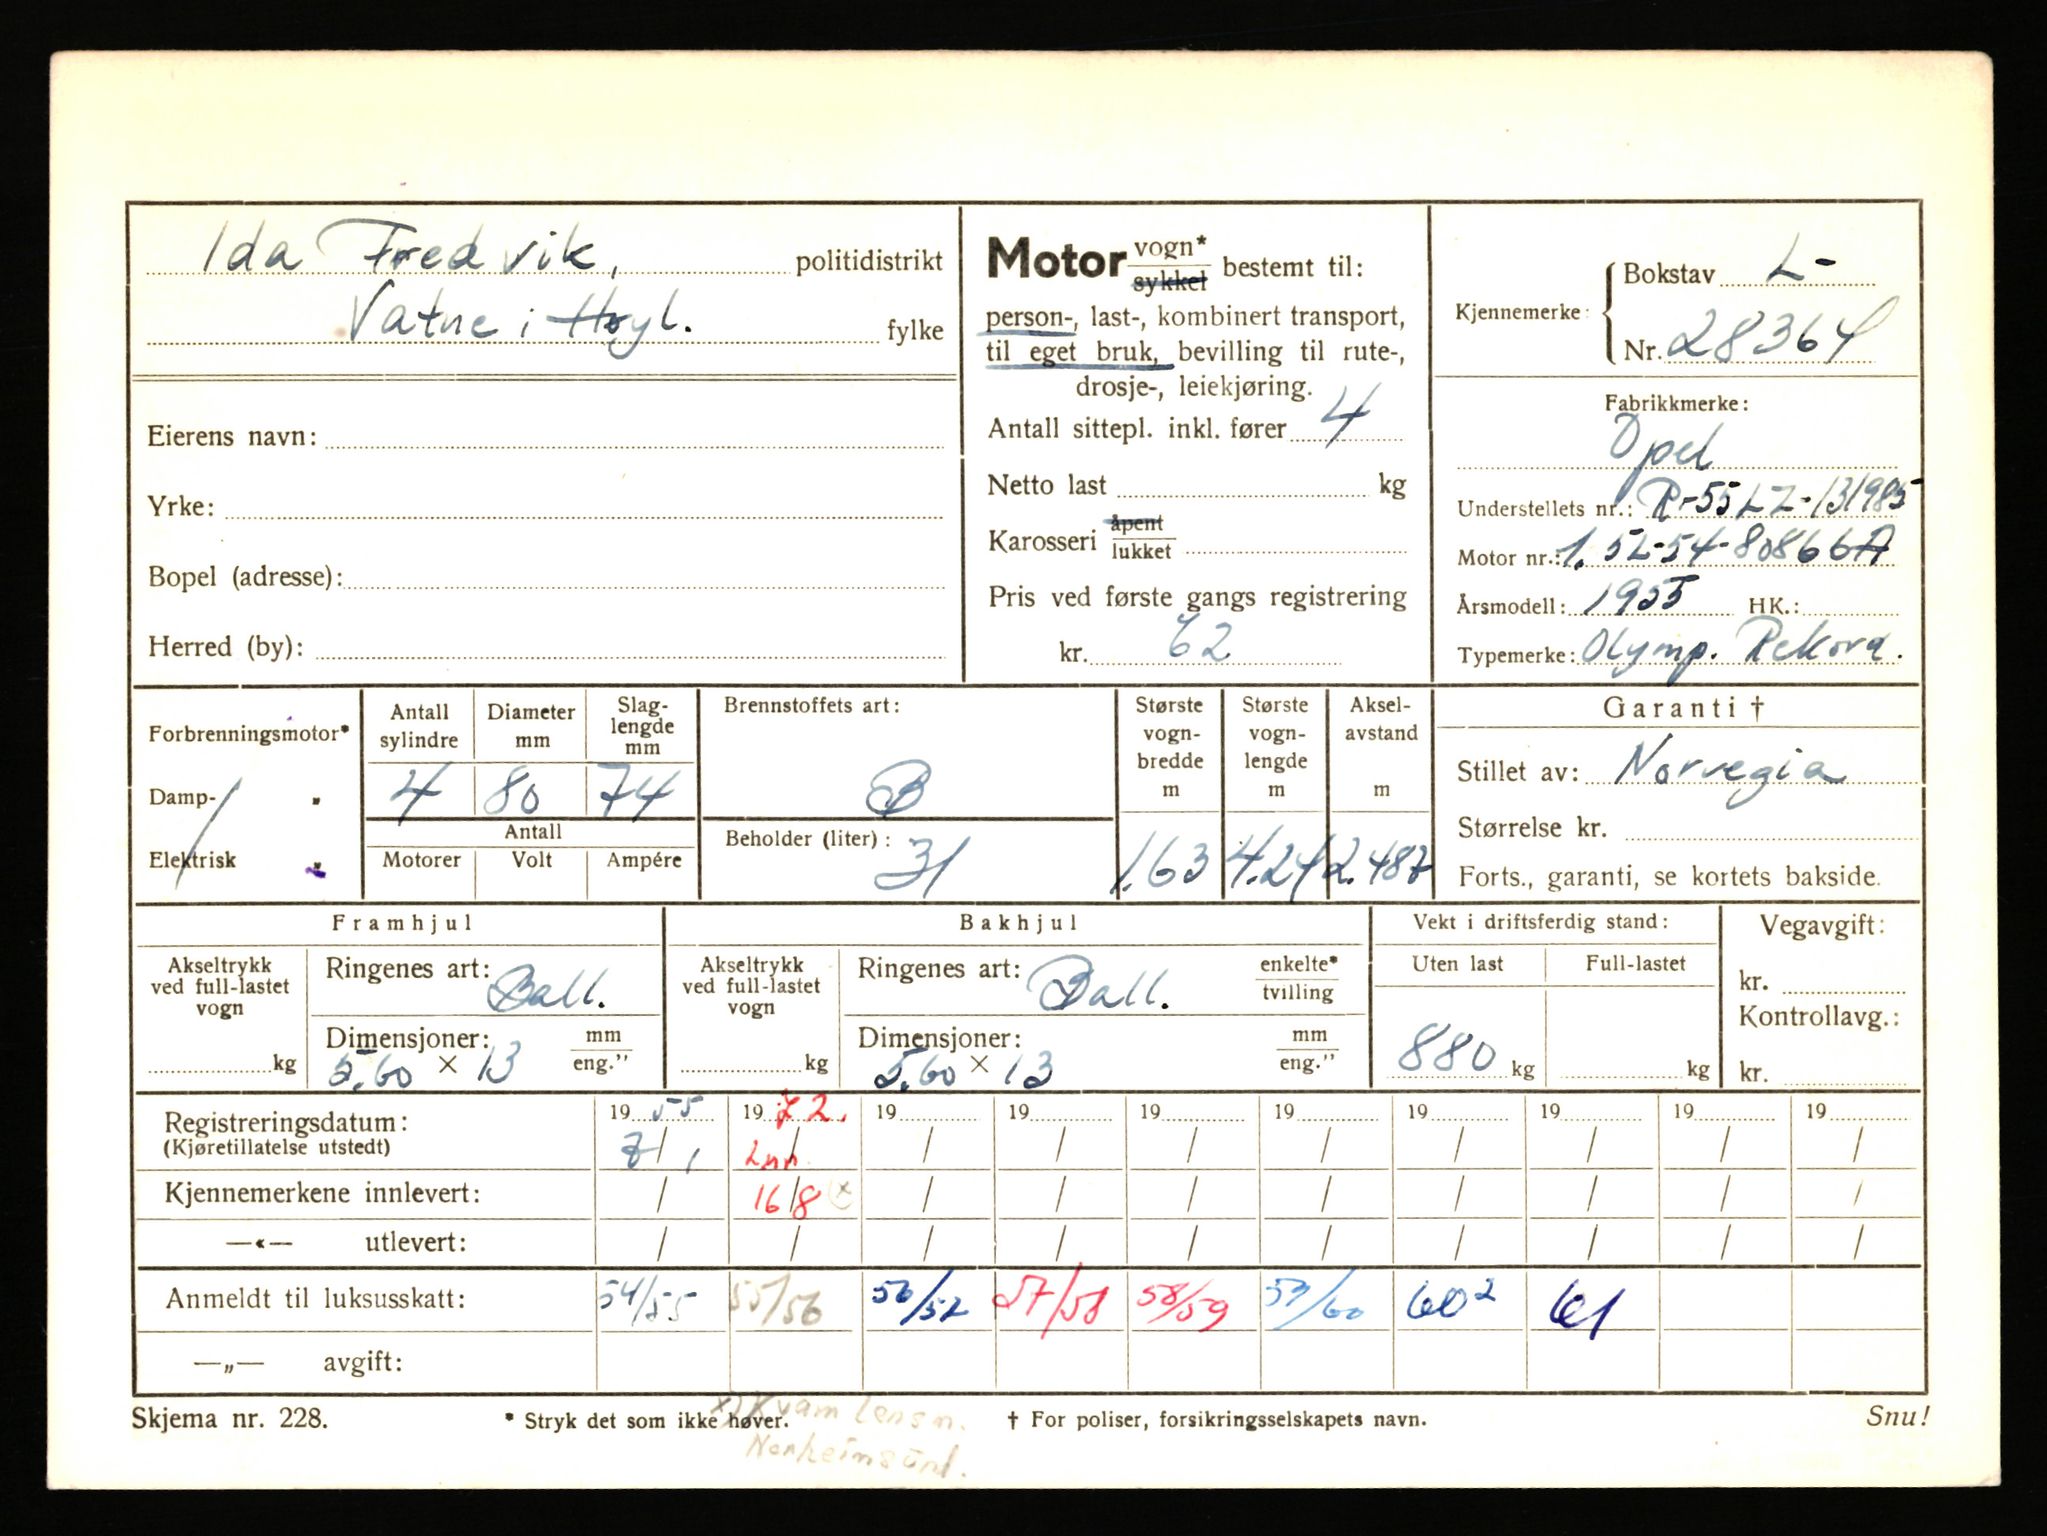 Ida Fredvik, politidistrikt
Vatne i Høyl. fylke
Eierens navn:
Yrke:
Bopel (adresse):
Herred (by):
Motor vogn* sykkel bestemt til:
person-, last-, kombinert transport,
til eget bruk, bevilling til rute-,
drosje-, leiekjøring.
Antall sittepl. inkl. fører 4
Netto last kg
Karosseri åpent lukket
Pris ved første gangs registrering
kr. 62
Kjennemerke: Bokstav L-
Nr. 28364
Fabrikkmerke:
Opel
Understellets nr.: R-55LZ-131985
Motor nr.: 1.5L-54-80866A
Årsmodell: 1955 HK.:
Typemerke: Olymp. Rekord.
Forbrenningsmotor*
Damp- "
Elektrisk "
Antall sylindre Diameter mm Slag-lengde mm
4 80 74
Antall
Motorer Volt Ampére
Brennstoffets art:
B
Beholder (liter): 31
Største vogn-bredde m
1.63
Største vogn-lengde m
4.24
Aksel-avstand m
2.487
Garanti †
Stillet av: Norvegia
Størrelse kr.
Forts., garanti, se kortets bakside.
Framhjul
Akseltrykk ved full-lastet vogn
kg
Ringenes art: Ball.
Dimensjoner: mm eng."
5.60 × 13
Bakhjul
Akseltrykk ved full-lastet vogn
kg
Ringenes art: Ball. enkelte* tvilling
Dimensjoner: mm eng."
5.60 × 13
Vekt i driftsferdig stand:
Uten last Full-lastet
880 kg kg
Vegavgift:
kr.
Kontrollavg.:
kr.
Registreringsdatum: 19 55 19 72. 19 19 19 19 19 19 19 19
(Kjøretillatelse utstedt) 7/1 Inn / / / / / / / /
Kjennemerkene innlevert: / 16/8 x / / / / / / / /
—«— utlevert: / / / / / / / / / /
Anmeldt til luksusskatt: 54/55 55/56 56/57 57/58 58/59 59/60 60² 61
—„— avgift:
Skjema nr. 228. * Stryk det som ikke høver. † For poliser, forsikringsselskapets navn. Snu!
x) Kvam lensm.
Norheimsund.